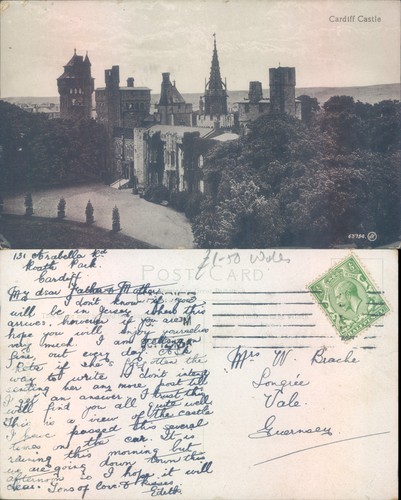 Cardiff Castle
131 Arabella Rd
Roath Park
Cardiff
£1-50 Wales
POST CARD
My dear Father & Mother,
I don't know if you
will be in Jersey when this
arrives, however if you are I
hope you will enjoy yourselves
very much. I am getting on
fine, out every day
Reta if she's the
way to write. I don't intend
sending her any more post till
I get an answer. I trust this
will find you all quite well
This is a view of the castle
I have passed this several
times on the car. It is
raining this morning but
we are going down town this
afternoon so I hope it will
clear. Tons of love & kisses
Edith
Mrs W. Brache
Longrée
Vale.
Guernsey